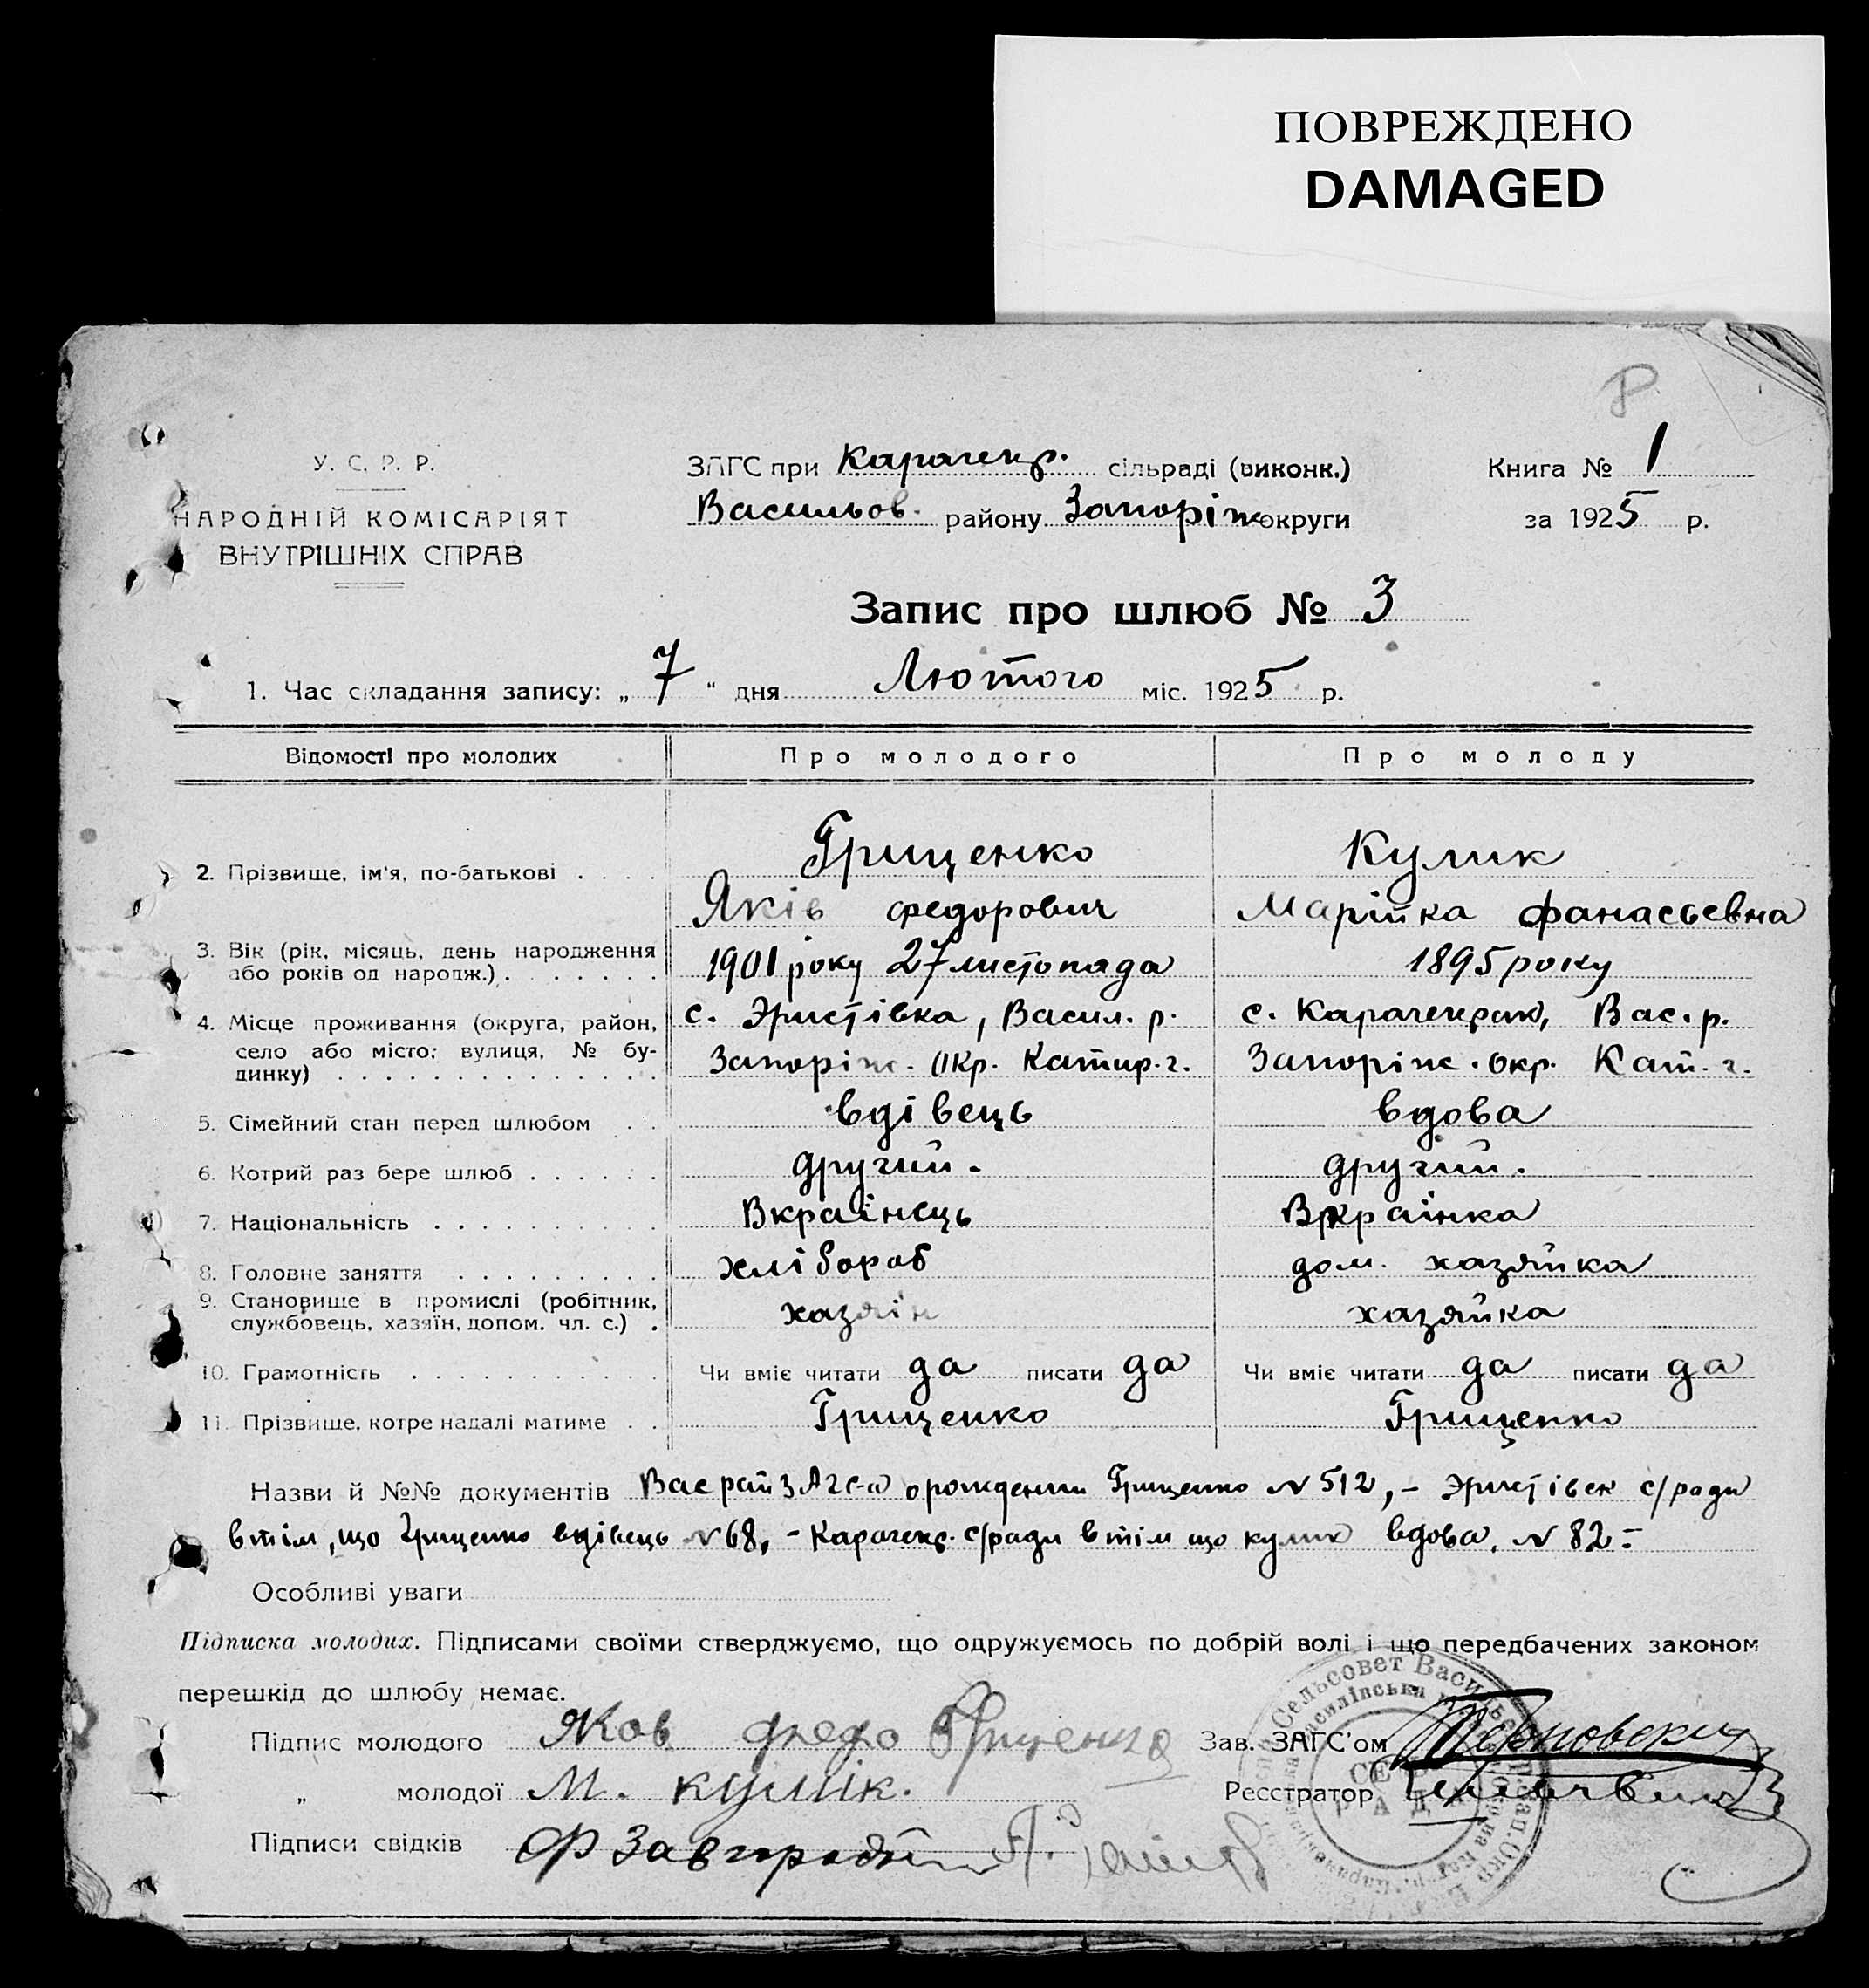 ПОВРЕЖДЕНО
DAMAGED
У. С. Р. Р.
НАРОДНІЙ КОМІСАРІЯТ
ВНУТРІШНІХ СПРАВ
ЗАГС при Карачекр. сільраді (виконк.)
Васильов. району Запоріж округи
Книга № 1
за 1925 р.
Запис про шлюб № 3
1. Час складання запису: „ 7 “ дня Лютого міс. 1925 р.
Відомості про молодих Про молодого Про молоду
Грищенко Кулик
2. Прізвище, ім'я, по-батькові . . . .
Яків Федорович Марійка Фанасьевна
3. Вік (рік, місяць, день народження
або років од народж.) . . . . . . . 1901 року 27 листопада 1895 року
4. Місце проживання (округа, район, с. Эристівка, Васил. р. с. Карачекрак, Вас. р.
село або місто: вулиця, № бу-
динку) . . . . . . . . . . . . . . Запоріж. Окр. Катир. г. Запоріж. Окр. Кат. г.
5. Сімейний стан перед шлюбом . . вдівець вдова
6. Котрий раз бере шлюб . . . . . . другий. другий.
7. Національність . . . . . . . . . Вкраінець Вкраінка
8. Головне заняття . . . . . . . . . хлібороб дом. хазяйка
9. Становище в промислі (робітник,
службовець, хазяїн, допом. чл. с.) . хазяін хазяйка
10. Грамотність . . . . . . . . . . . Чи вміє читати да писати да Чи вміє читати да писати да
11. Прізвище, котре надалі матиме . . Грищенко Грищенко
Назви й №№ документів Вас рай ЗАГС-а о рождении Грищенко № 512, - Эристівск с/ради
в тім, що Грищенко вдівець № 68, - Карачекр. с/ради в тім що кулик вдова, № 82 -
Особливі уваги
Підписка молодих. Підписами своїми стверджуємо, що одружуємось по добрій волі і що передбачених законом
перешкід до шлюбу немає.
Підпис молодого Яков Федо Грищенко Зав. ЗАГС'ом
„ молодої М. кулік. Реєстратор
Підписи свідків Ф Завгородній